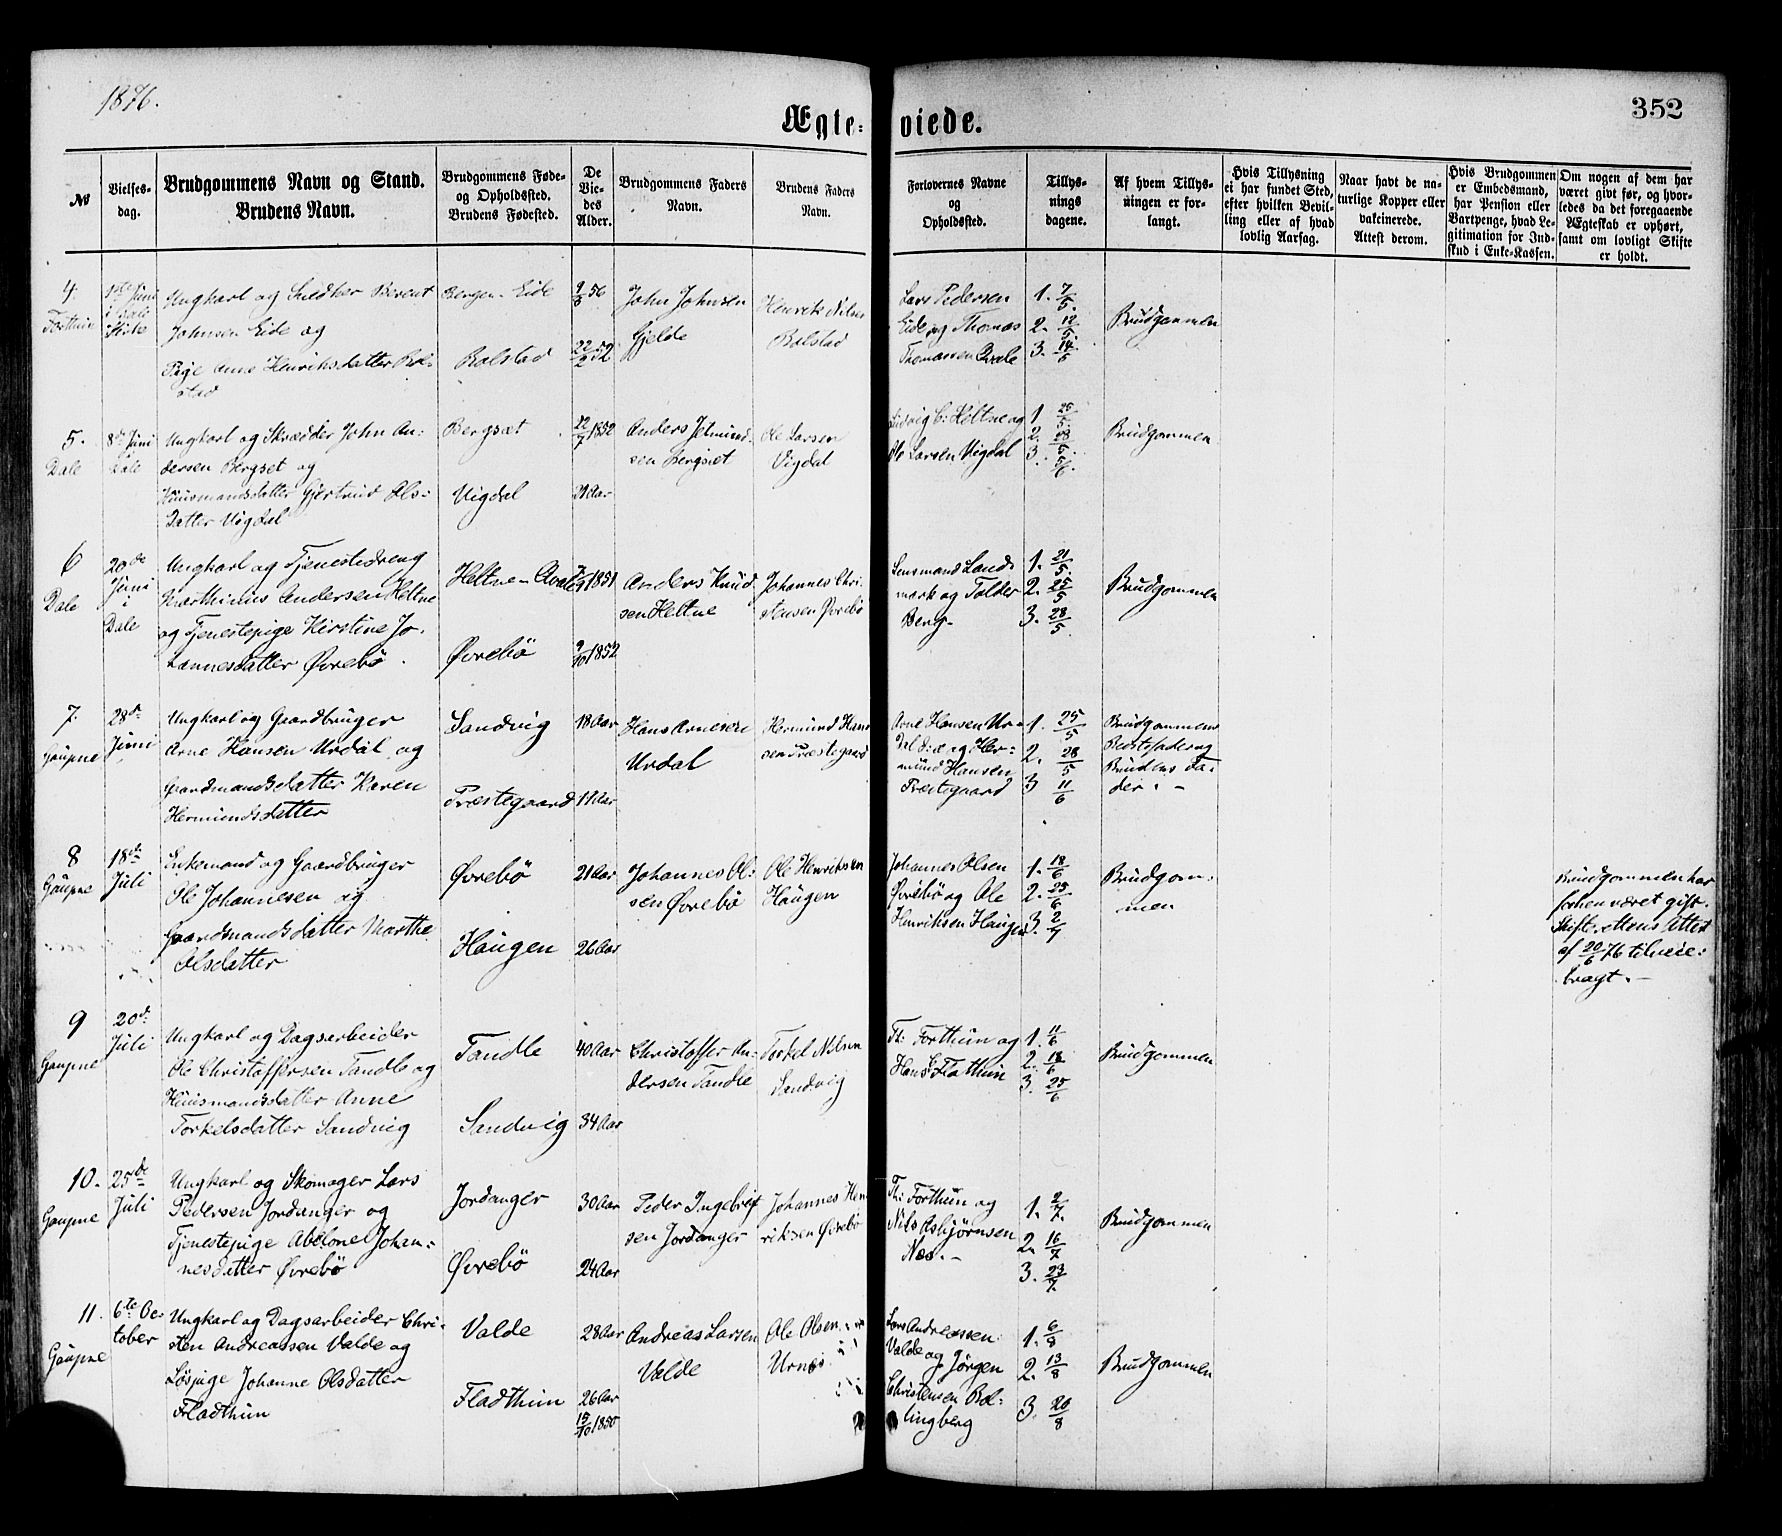 1876.
Ægte=viede.
352
No
Vielses-
dag.
Brudgommens Navn og Stand.
Brudens Navn.
Brudgommens Føde-
og Opholdssted.
Brudens Fødested.
De
Vie-
des
Alder.
Brudgommens Faders
Navn.
Brudens Faders
Navn.
Forlovernes Navne
og
Opholdssted.
Tillys-
nings
dagene.
Af hvem Tillys-
ningen er for-
langt.
Hvis Tillysning
ei har fundet Sted,
efter hvilken Bevil-
ling eller af hvad
lovlig Aarsag.
Naar havt de na-
turlige Kopper eller
vakcinerede.
Attest derom.
Hvis Brudgommen
er Embedsmand,
har Pension eller
Vartpenge, hvad Le-
gitimation for Ind-
skud i Enke-Kassen.
Om nogen af dem har
været givt før, og hvor-
ledes da det foregaaende
Ægteskab er ophørt,
samt om lovligt Skifte
er holdt.
4.
Forthun
Juni
Ungkarl og Snedker Berent
Johnsen Eide og
Pige Anne Henriksdatter Bol-
stad
Bergen - Eide
Bolstad
9/8 56
22/2 52
John Johnsen
Gjelde
Henrik Nilsen
Bolstad
Lars Pedersen
Eide og Thomas
Thomassen Qvale
1. 7/5.
2. 12/5
3. 14/5
Brudgommen
5.
Dale
8de Juni
Dale
Ungkarl og Skrædder John An-
dersen Bergset og
Huusmandsdatter Gjertrud Ols-
datter Vigdal
Bergsæt
Vigdal
22/7 1852
29 Aar
Anders Jetmund-
sen Bergsæt
Ole Larsen
Vigdal
Ludvig C: Heltne og
Ole Larsen Vigdal
1 25/5.
2. 28/5.
3. 5/6
Brudgommen.
6
Dale
20de
Juni
i
Dale
Ungkarl og Tjenestedreng
Marthinus Andersen Heltne
og Tjenestepige Kirstine Jo-
hannesdatter Øvrebö.
Heltne - Qvale
Øvrebö
7/9 1851
9/10 1852
Anders Knud-
sen Heltne
Johannes Chri-
stensen Øvrebö
Lensmand Land-
mark og Tolder
Berg-
1. 21/5.
2. 25/5
3. 28/5.
Brudgommen
7.
Gaupne
28de
Juni
Ungkarl og Gaardbruger
Arne Hansen Urdal og
Gaardmandsdatter Karen
Hermundsdatter
Sandvig
Præstegaard
18 Aar
18 Aar
Hans Arnesen
Urdal
Hermund Han-
sen Præstegaard
Arne Hansen Ur-
dal d: æ og Her-
mund Hansen
Præstegaard
1. 25/5
2. 28/5
3 11/6
Brudgommens
Bedstefader og
Brudens Fa-
der. -
8
Gaupne
18de
Juli
Enkemand og Gaardbruger
Ole Johannesen og
Gaardmandsdatter Marthe
Olsdatter
Øvrebö
Haugen
21 Aar
26 Aar
Johannes Ol-
sen Øvrebö
Ole Henriksen
Haugen
Johannes Olsen
Øvrebö og Ole
Henriksen Haugen
1. 18/6
2. 25/6
3. 2/7
Brudgom-
men
Brudgommen har
forhen været gift.
Skifterettens Attest
af 20/6 76 tilveie-
bragt. -
9
Gaupne
20de
Juli
Ungkarl og Dagsarbeider
Ole Christoffersen Tandle og
Huusmandsdatter Anne
Torkelsdatter Sandvig
Tandle
Sandvig
40 Aar
34 Aar
Christoffer An-
dersen Tandle
Torkel Nilsen
Sandvig
Th: Forthun og
Hans Flathun
1. 11/6
2. 18/6
3. 25/6
Brudgommen
10.
Gaupne
25de
Juli
Ungkarl og Skomager Lars
Pedersen Jordanger og
Tjenestepige Abelone Johan-
nesdatter Øvrebö
Jordanger
Øvrebö
30 Aar
24 Aar
Peder Ingebrigt-
sen Jordanger
Johannes Hen-
riksen Øvrebö
Th: Forthun og
Nils Asbjörnsen
Næs. -
1. 2/7.
2. 16/7
3. 23/7.
Brudgommen
11.
Gaupne
6te Oc-
tober
Ungkarl og Dagsarbeider Chri-
sten Andreassen Valde og
Löspige Johanne Olsdatter
Fladthun
Valde
Fladthun
28 Aar
26 Aar
15/10 1850
Andreas Larsen
Valde
Ole Olsen
Urnes
Lars Andreassen
Valde og Jörgen
Christensen Bol-
lingberg
1. 6/8
2. 13/8
3. 20/8
Brudgommen